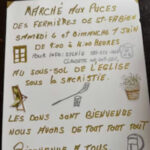 MARCHÉ AUX PUCES
DES FERMIÈRES DE ST-FABIEN
SAMEDI 6 et DIMANCHE 7 JUIN
DE 9:00 À 4:00 HEURES
POUR INFO: SYLVIE
CLAUDETTE
AU SOUS-SOL DE L'ÉGLISE
SOUS LA SACRISTIE.
LES DONS SONT BIENVENUE
NOUS AVONS DE TOUT TOUT TOUT
BIENVENUE À TOUS